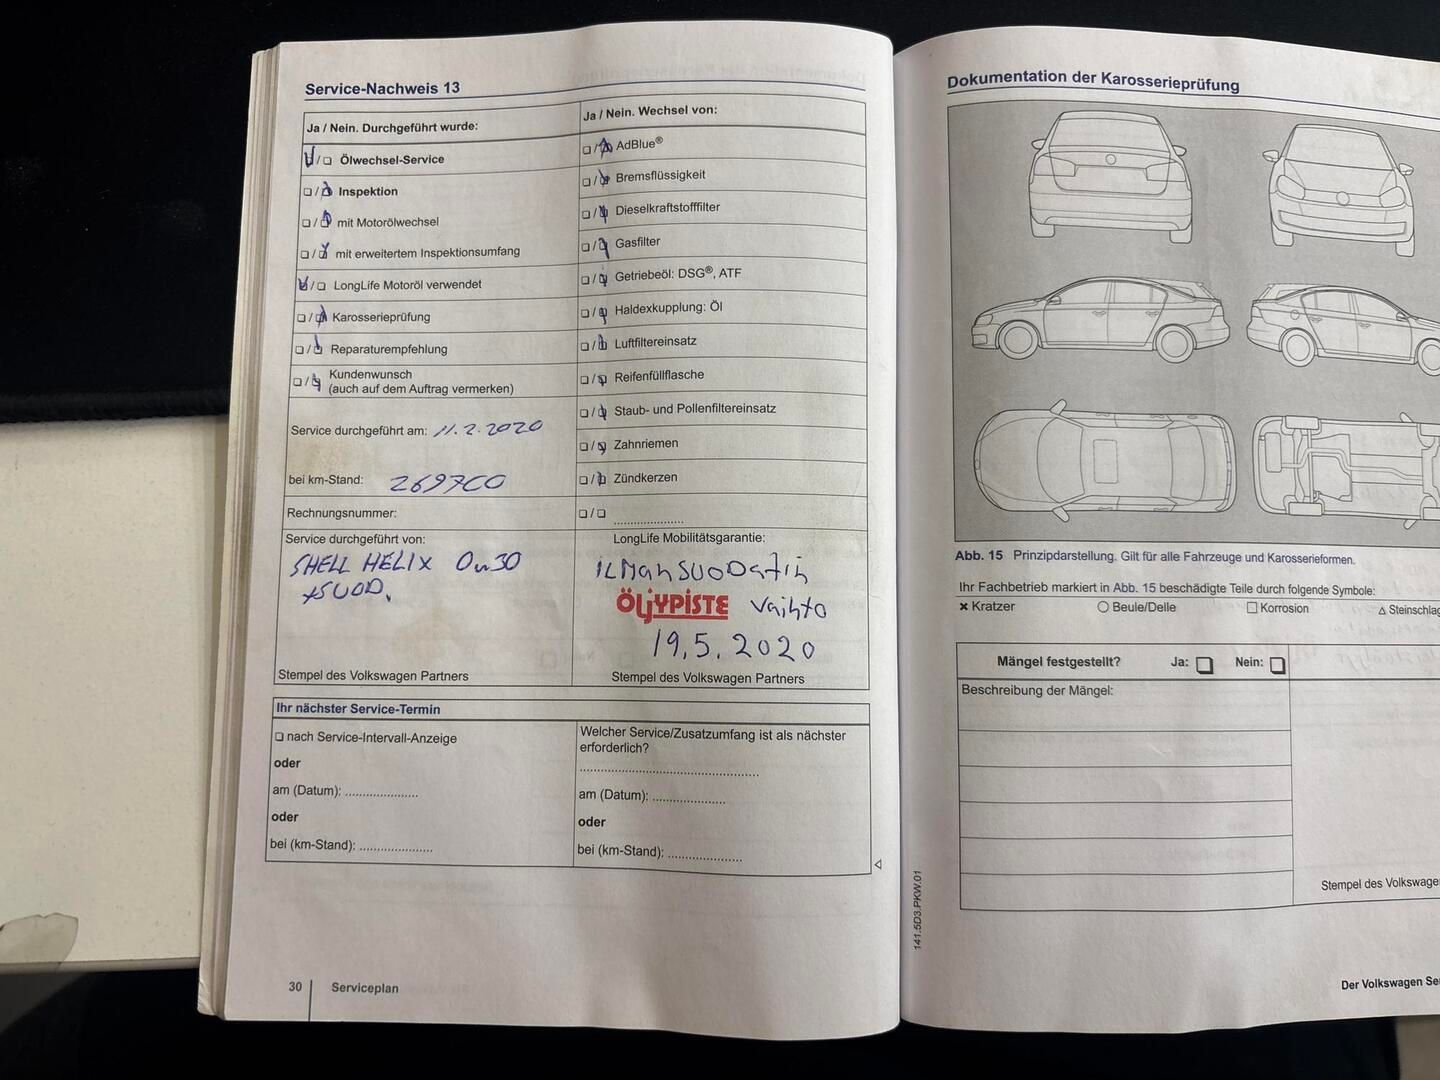 Service-Nachweis 13
Ja / Nein. Durchgeführt wurde:
Ölwechsel-Service
Inspektion
mit Motorölwechsel
mit erweitertem Inspektionsumfang
LongLife Motoröl verwendet
Karosserieprüfung
Reparaturempfehlung
Kundenwunsch
(auch auf dem Auftrag vermerken)
Service durchgeführt am: 11.2.2020
bei km-Stand: 269700
Rechnungsnummer:
Service durchgeführt von:
SHELL HELIX 0W30
+SUOD.
Stempel des Volkswagen Partners
Ja / Nein. Wechsel von:
AdBlue®
Bremsflüssigkeit
Dieselkraftstofffilter
Gasfilter
Getriebeöl: DSG®, ATF
Haldexkupplung: Öl
Luftfiltereinsatz
Reifenfüllflasche
Staub- und Pollenfiltereinsatz
Zahnriemen
Zündkerzen
LongLife Mobilitätsgarantie:
ILMANSUODATIN
ÖLJYPISTE Vaihto
19.5.2020
Stempel des Volkswagen Partners
Ihr nächster Service-Termin
nach Service-Intervall-Anzeige
oder
am (Datum):
oder
bei (km-Stand):
Welcher Service/Zusatzumfang ist als nächster
erforderlich?
am (Datum):
oder
bei (km-Stand):
30 Serviceplan
Dokumentation der Karosserieprüfung
Abb. 15 Prinzipdarstellung. Gilt für alle Fahrzeuge und Karosserieformen.
Ihr Fachbetrieb markiert in Abb. 15 beschädigte Teile durch folgende Symbole:
Kratzer Beule/Delle Korrosion Steinschlag
Mängel festgestellt? Ja: Nein:
Beschreibung der Mängel:
Stempel des Volkswagen
141.5D3.PKW.01
Der Volkswagen Se